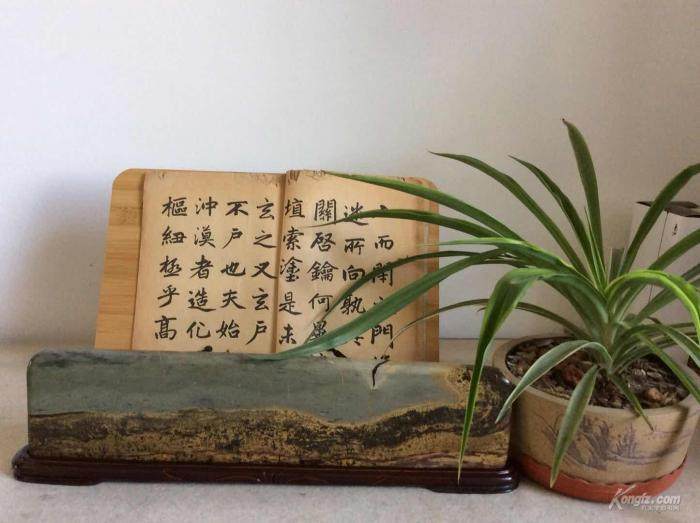 而門
迷所向孰
關啓鑰何
埴索塗是未
玄之又玄戶
不戶也夫始
沖漠者造化
樞紐極乎高
Kongfz.com